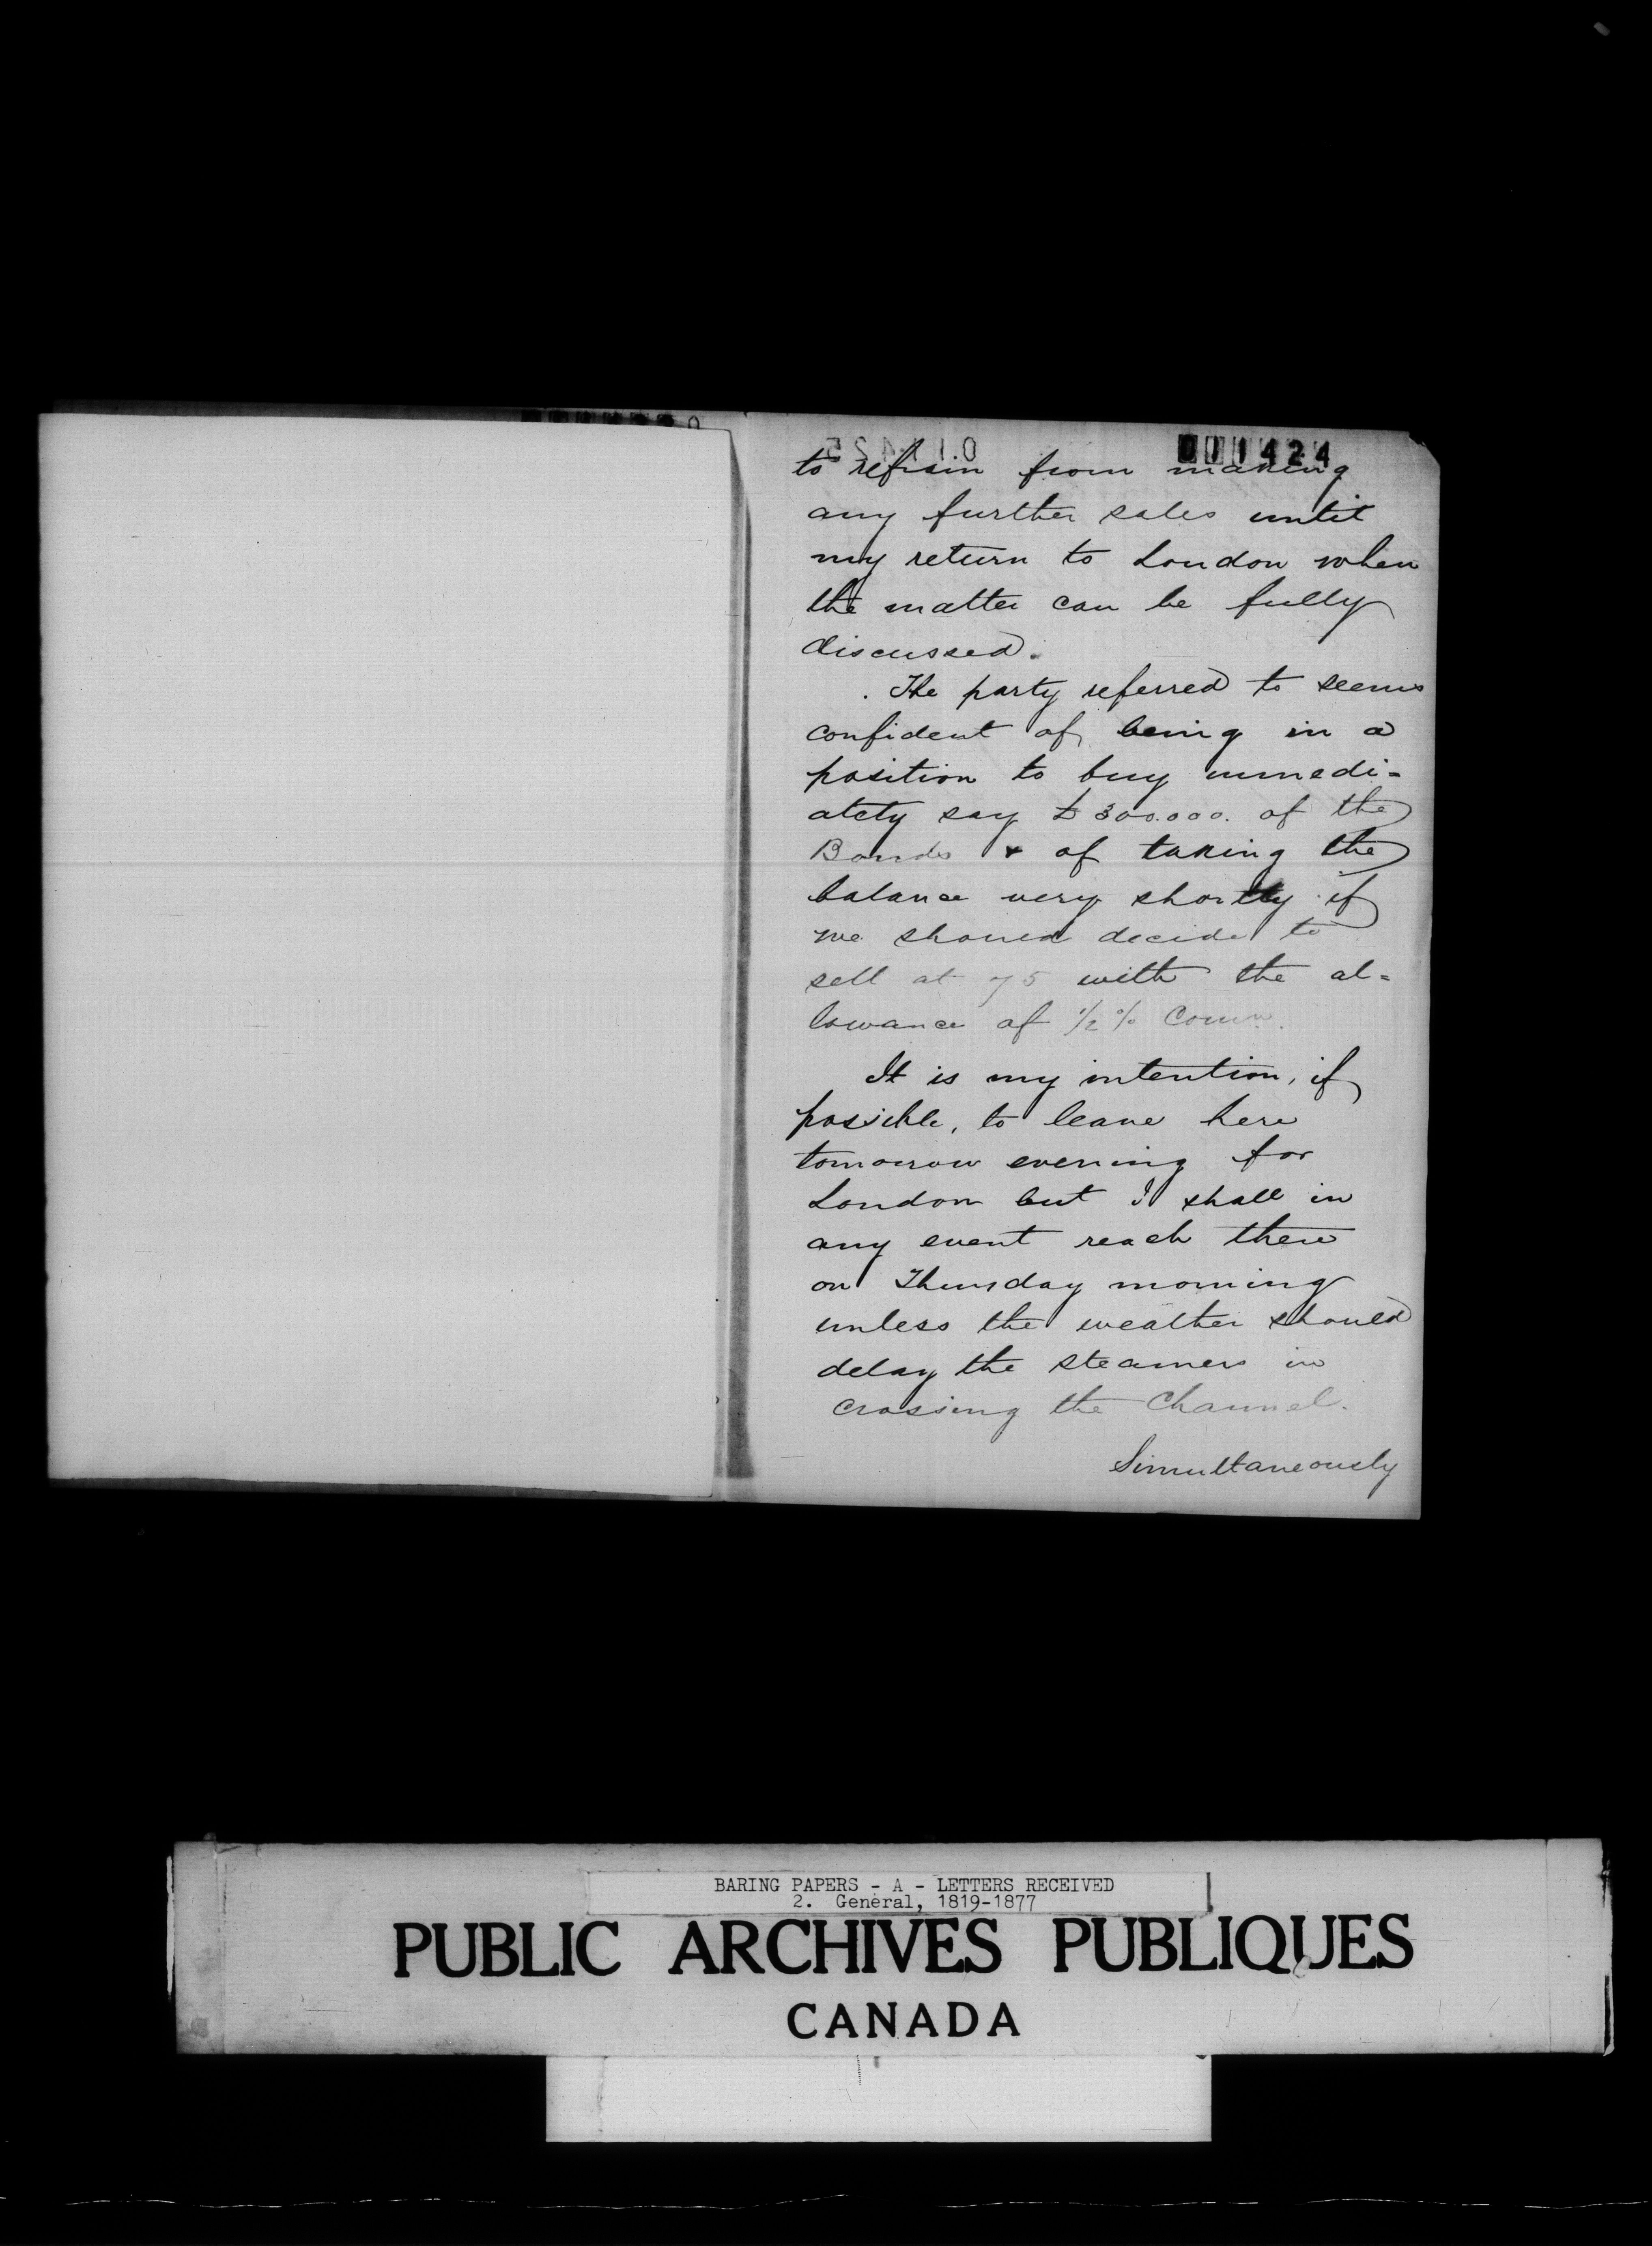 011424
to refrain from making
any further sales until
my return to London when
the matter can be fully
discussed.
The party referred to seems
confident of being in a
position to buy immedi=
ately say £300.000. of the
Bonds & of taking the
balance very shortly if
we should decide to
sell at 75 with the al=
lowance of 1/2% Comn.
It is my intention, if
possible, to leave here
tomorrow evening for
London but I shall in
any event reach there
on Thursday morning
unless the weather should
delay the steamers in
crossing the Channel.
Simultaneously
BARING PAPERS - A - LETTERS RECEIVED
2. General, 1819-1877
PUBLIC ARCHIVES PUBLIQUES
CANADA